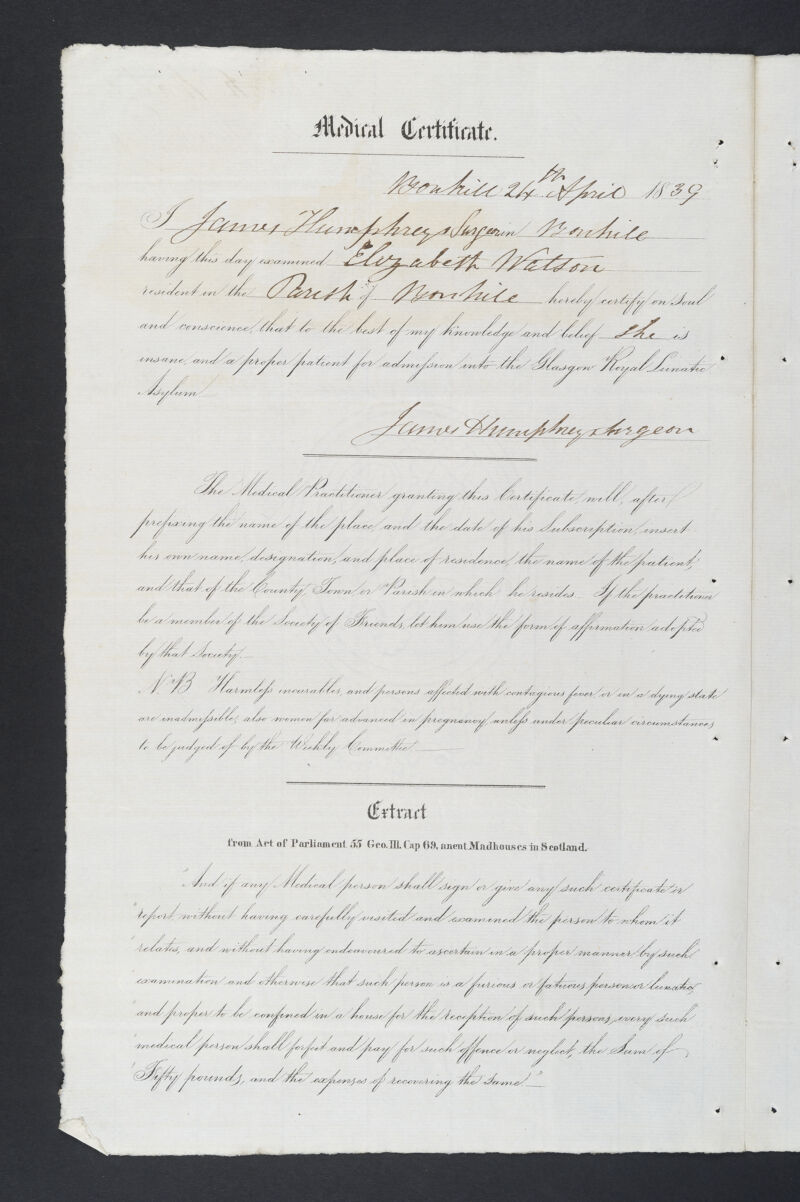 Medical Certificate.
Bonhill 24th April 1839
I James Humphreys Surgeon Bonhill
having this day examined Elizabeth Watson
resident in the Parish of Bonhill hereby certify on soul
and conscience, that to the best of my knowledge and belief she is
insane, and a proper patient for admission into the Glasgow Royal Lunatic
Asylum
James Humphreys Surgeon
The Medical Practitioner granting this Certificate will, after
prefixing the name of the place, and the date of his Subscription, insert
his own name, designation, and place of residence, the name of the patient,
and that of the County, Town or Parish in which he resides. If the practitioner
be a member of the Society of Friends, let him use the form of affirmation adopted
by that Society.
N.B Harmless incurables, and persons affected with contagious fever, or in a dying state
are inadmissible, also women far advanced in pregnancy, unless under peculiar circumstances,
to be judged of by the Weekly Committee
Extract
from Act of Parliament 55 Geo. III. Cap 69, anent Madhouses in Scotland.
"And if any Medical person shall sign or give any such certificate or
"report without having carefully visited and examined the person to whom it
"relates, and without having endeavoured to ascertain in a proper manner by such
"examination and otherwise that such person is a furious or fatuous person or lunatic,
"and proper to be confined in a house for the reception of such persons, every such
"medical person shall forfeit and pay for such offence or neglect, the Sum of
"Fifty pounds, and the expenses of recovering the same"